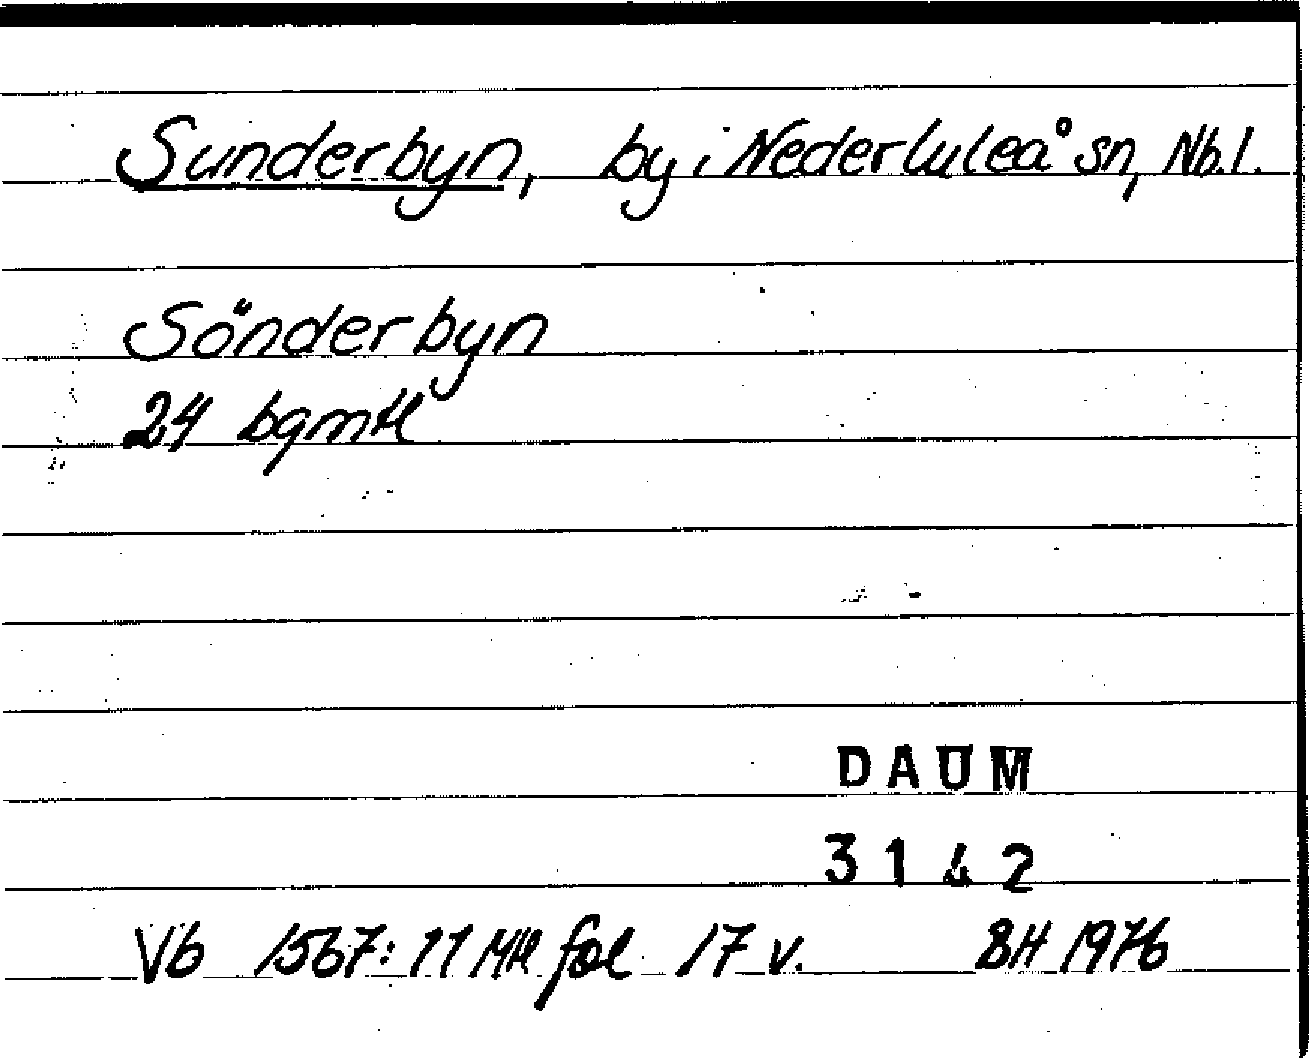 Sunderbyn, by i Nederluleå sn, Nb.l.
Sönderbyn
24 bgmtl
DAUM
3142
Vb 1567:11 Mtl fol 17 v. BH 1976